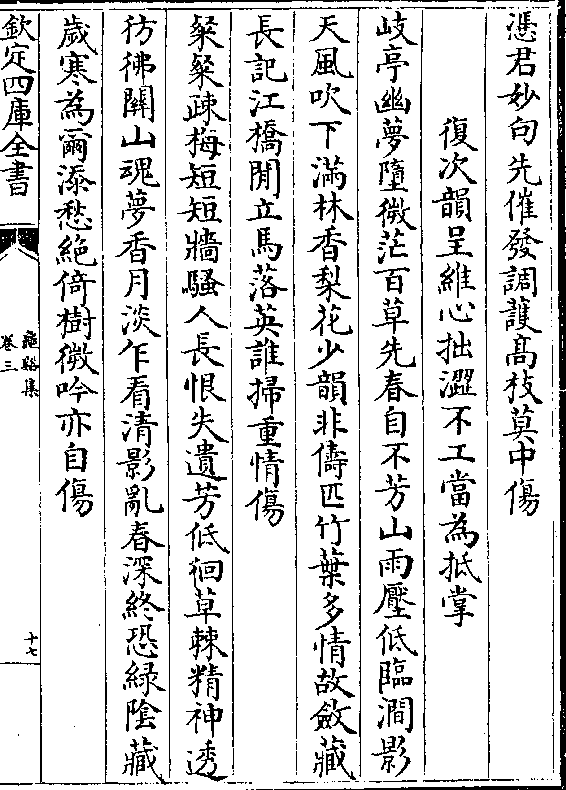 憑君妙句先催發調護髙枝莫中傷
復次韻呈維心拙澀不工當為抵掌
岐亭幽夢墮微茫百草先春自不芳山雨壓低臨澗影
天風吹下滿林香梨花少韻非儔匹竹葉多情故斂藏
長記江橋閒立馬落英誰掃重情傷
粲粲疎梅短短牆騷人長恨失遺芳低徊草棘精神透
彷彿關山魂夢香月淡乍看清影亂春深終恐緑陰藏
歲寒為爾添愁絶倚樹微吟亦自傷
欽定四庫全書
龜谿集
卷三
十七